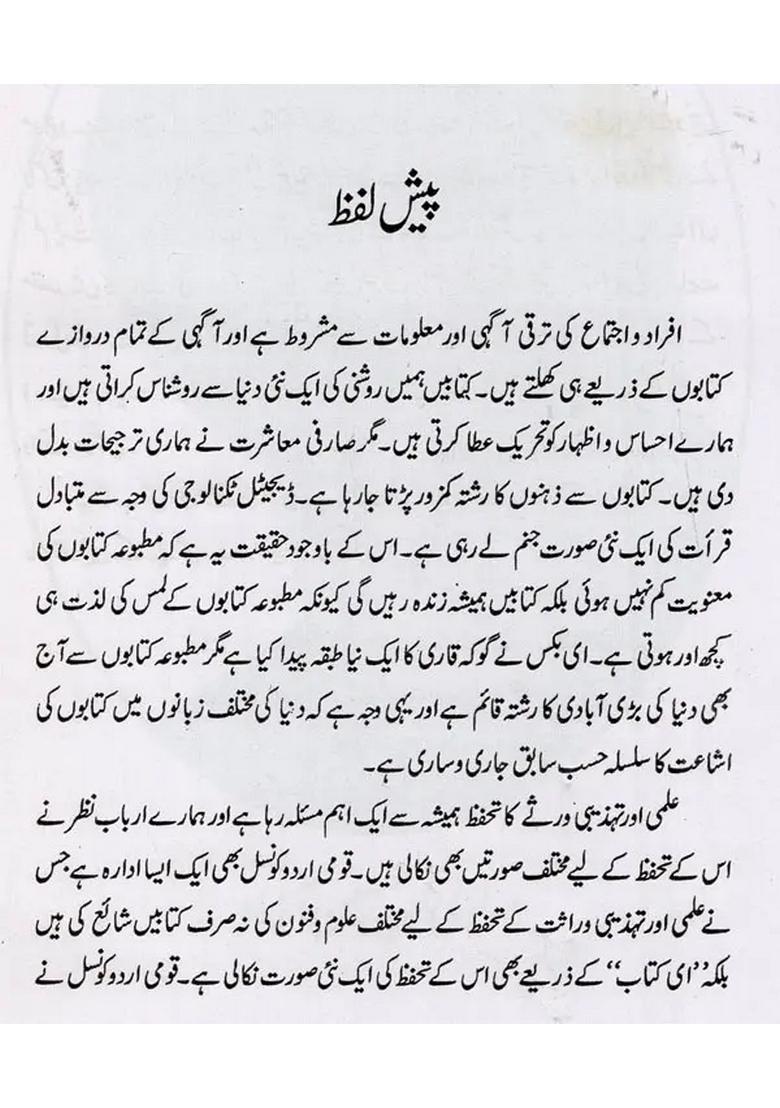 پیش لفظ
افراد و اجتماع کی ترقی آگہی اور معلومات سے مشروط ہے اور آگہی کے تمام دروازے
کتابوں کے ذریعے ہی کھلتے ہیں۔ کتابیں ہمیں روشنی کی ایک نئی دنیا سے روشناس کراتی ہیں اور
ہمارے احساس و اظہار کو تحریک عطا کرتی ہیں۔ مگر صارفی معاشرت نے ہماری ترجیحات بدل
دی ہیں۔ کتابوں سے ذہنوں کا رشتہ کمزور پڑتا جارہا ہے۔ ڈیجیٹل ٹکنالوجی کی وجہ سے متبادل
قرأت کی ایک نئی صورت جنم لے رہی ہے۔ اس کے باوجود حقیقت یہ ہے کہ مطبوعہ کتابوں کی
معنویت کم نہیں ہوئی بلکہ کتابیں ہمیشہ زندہ رہیں گی کیونکہ مطبوعہ کتابوں کے لمس کی لذت ہی
کچھ اور ہوتی ہے۔ ای بکس نے گو کہ قاری کا ایک نیا طبقہ پیدا کیا ہے مگر مطبوعہ کتابوں سے آج
بھی دنیا کی بڑی آبادی کا رشتہ قائم ہے اور یہی وجہ ہے کہ دنیا کی مختلف زبانوں میں کتابوں کی
اشاعت کا سلسلہ حسب سابق جاری و ساری ہے۔
علمی اور تہذیبی ورثے کا تحفظ ہمیشہ سے ایک اہم مسئلہ رہا ہے اور ہمارے ارباب نظر نے
اس کے تحفظ کے لیے مختلف صورتیں بھی نکالی ہیں۔ قومی اردو کونسل بھی ایک ایسا ادارہ ہے جس
نے علمی اور تہذیبی وراثت کے تحفظ کے لیے مختلف علوم و فنون کی نہ صرف کتابیں شائع کی ہیں
بلکہ ”ای کتاب“ کے ذریعے بھی اس کے تحفظ کی ایک نئی صورت نکالی ہے۔ قومی اردو کونسل نے